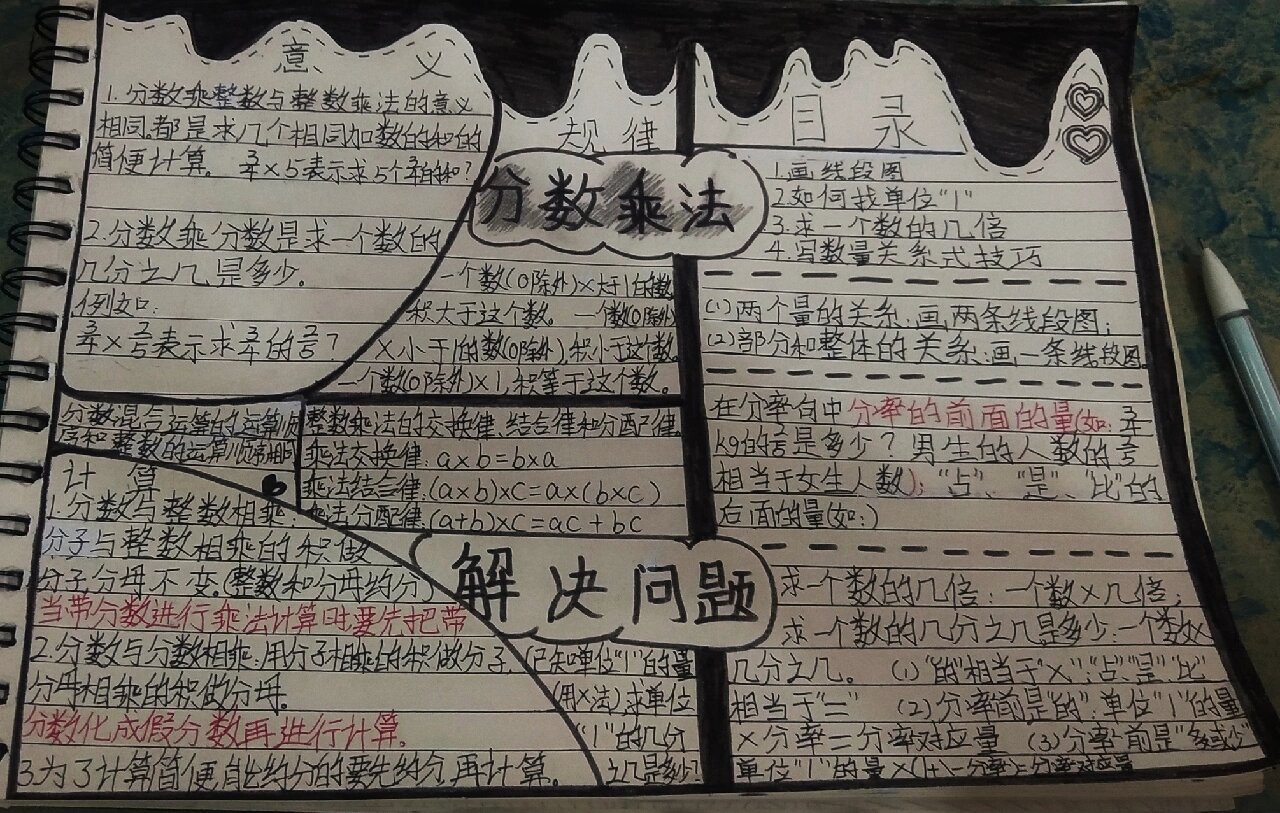 意 义
1.分数乘整数与整数乘法的意义
相同,都是求几个相同加数的和的
简便计算。 3/4×5表示求5个3/4的和?
2.分数乘分数是求一个数的
几分之几是多少。
例如:
3/4×2/5表示求3/4的2/5?
规律
分数乘法
一个数(0除外)×大于1的数
积大于这个数。一个数(0除外)
×小于1的数(0除外),积小于这个数。
一个数(0除外)×1,积等于这个数。
分数混合运算的运算顺
序和整数的运算顺序相同
整数乘法的交换律、结合律和分配律
乘法交换律:a×b=b×a
乘法结合律:(a×b)×c=a×(b×c)
乘法分配律:(a+b)×c=ac+bc
计算
1.分数与整数相乘:
分子与整数相乘的积做
分子分母不变。(整数和分母约分)
当带分数进行乘法计算时,要先把带
2.分数与分数相乘:用分子相乘的积做分子,
分母相乘的积做分母。
分数化成假分数再进行计算。
3.为了计算简便能约分的要先约分,再计算。
解决问题
(已知单位"1"的量
(用×法)求单位
"1"的几分
之几是多少?
目录
1.画线段图
2.如何找单位"1"
3.求一个数的几倍
4.写数量关系式技巧
(1)两个量的关系:画两条线段图;
(2)部分和整体的关系:画一条线段图
在分率句中分率的前面的量(如:
kg的 是多少?男生的人数的
相当于女生人数);"占"、"是"、"比"的
右面的量(如:)
求一个数的几倍:一个数×几倍;
求一个数的几分之几是多少:一个数×
几分之几。 (1)"的"相当于"×","占"、"是"、"比"
相当于"=" (2)分率前是"的":单位"1"的量
×分率=分率对应量 (3)分率前是"多或少"
单位"1"的量×(1+、-分率)=分率对应量